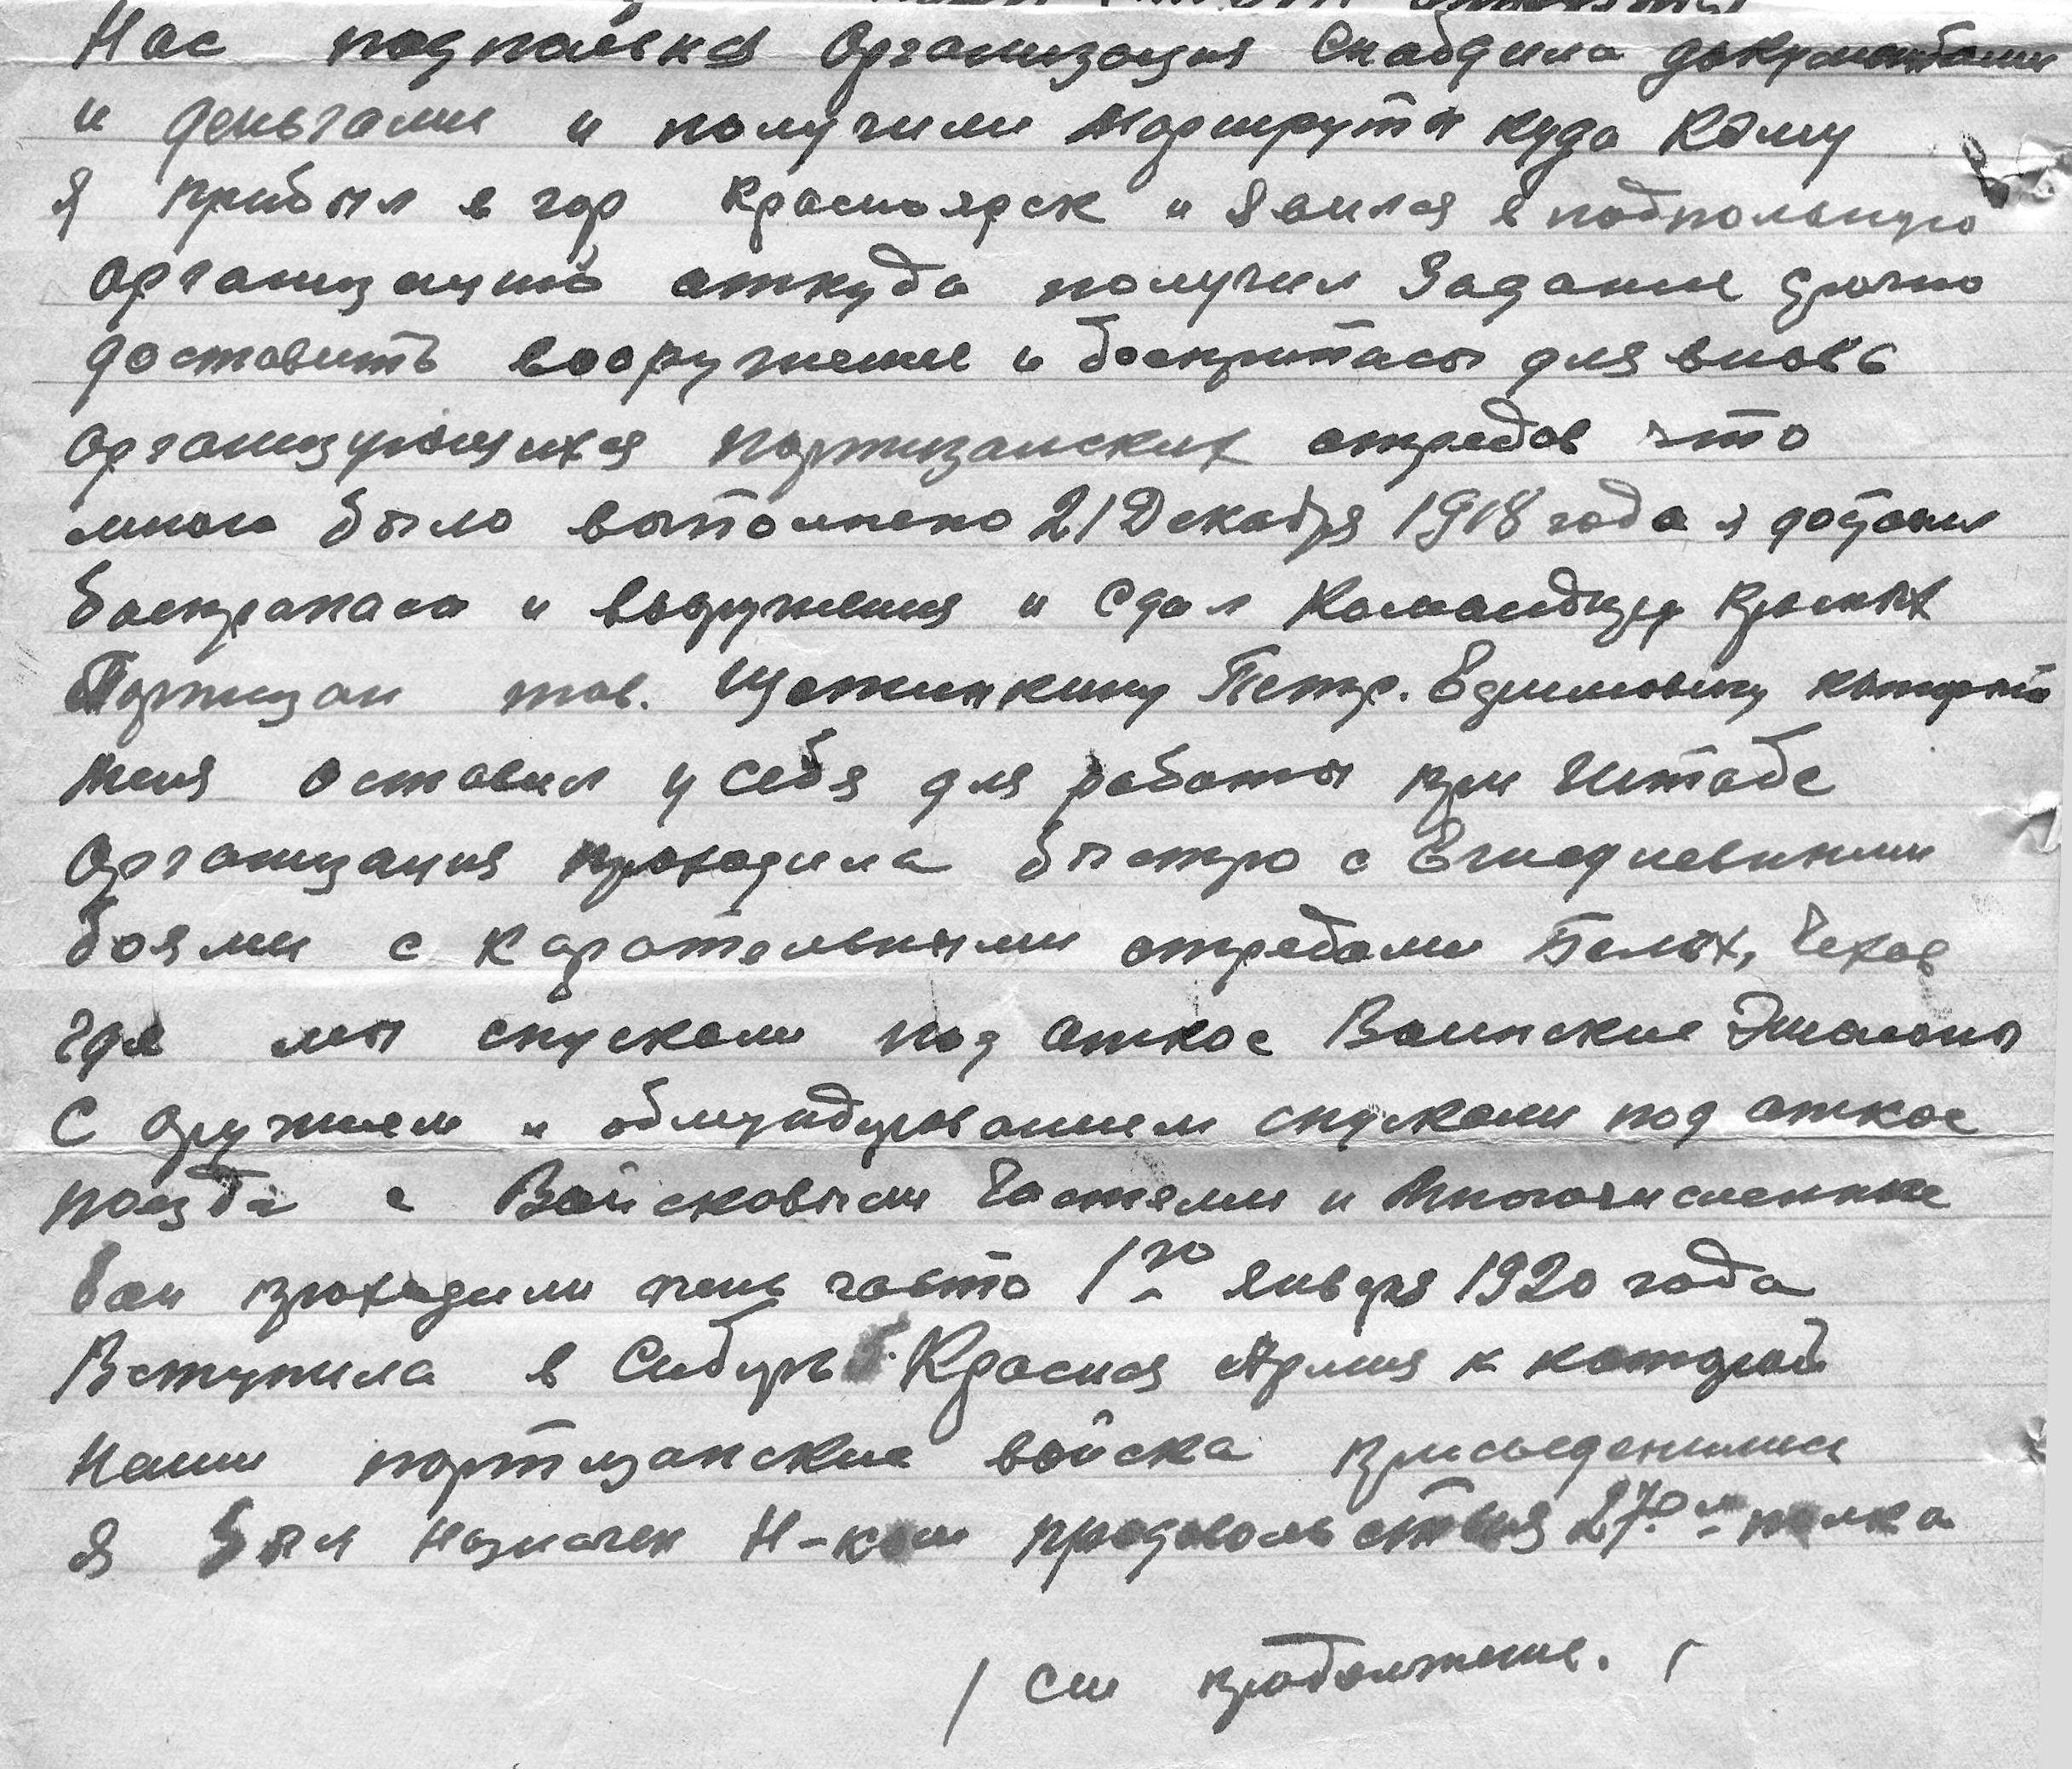 Нас подпольная Организация Снабдила документами
и деньгами и получили маршруты куда кому
Я прибыл в гор Красноярск и явился в подпольную
организацию откуда получил Задание срочно
доставить вооружение и боеприпасы для вновь
организующихся партизанских отредов что
мною было выполнено 21 Декабря 1918 года я доставил
боеприпаса и вооружения и Сдал Командиру Красных
Партизан тов. Щетинкину Петр. Ефимовичу который
меня оставил у себя для работы при Штабе
Организация проходила быстро с Ежедневными
боями с карательными отредами Белых, Чехов
где мы спускали под аткос Воинские Эшалоны
С оружием и обмундированием спускали под аткос
поезда с Войсковыми Частями и многочисленные
бои проходили очень часто 1го января 1920 года
Вступила в Сибирь Красная Армия к которой
наши партизанские войска присоеденились
я был назначен Н-ком продовольствия 27ого полка
/ См продолжение. /